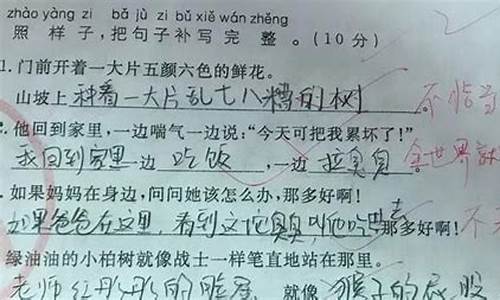 zhào yàng zi bǎ jù zi bǔ xiě wán zhěng
照 样 子，把 句 子 补 写 完 整 。（10 分）
1. 门前开着一大片五颜六色的鲜花。
山坡上种着一大片乱七八糟的树。
2. 他回到家里，一边喘气一边说：“今天可把我累坏了！”
我回到家里一边吃饭，一边拉臭臭
如果妈妈在身边，问问她该怎么办，那多好啊！
如果爸爸在这里，看到这坨臭臭叫他吃去那多好啊！
绿油油的小柏树就像战士一样笔直地站在那里。
老师红彤彤的脸 就像猴子的屁股